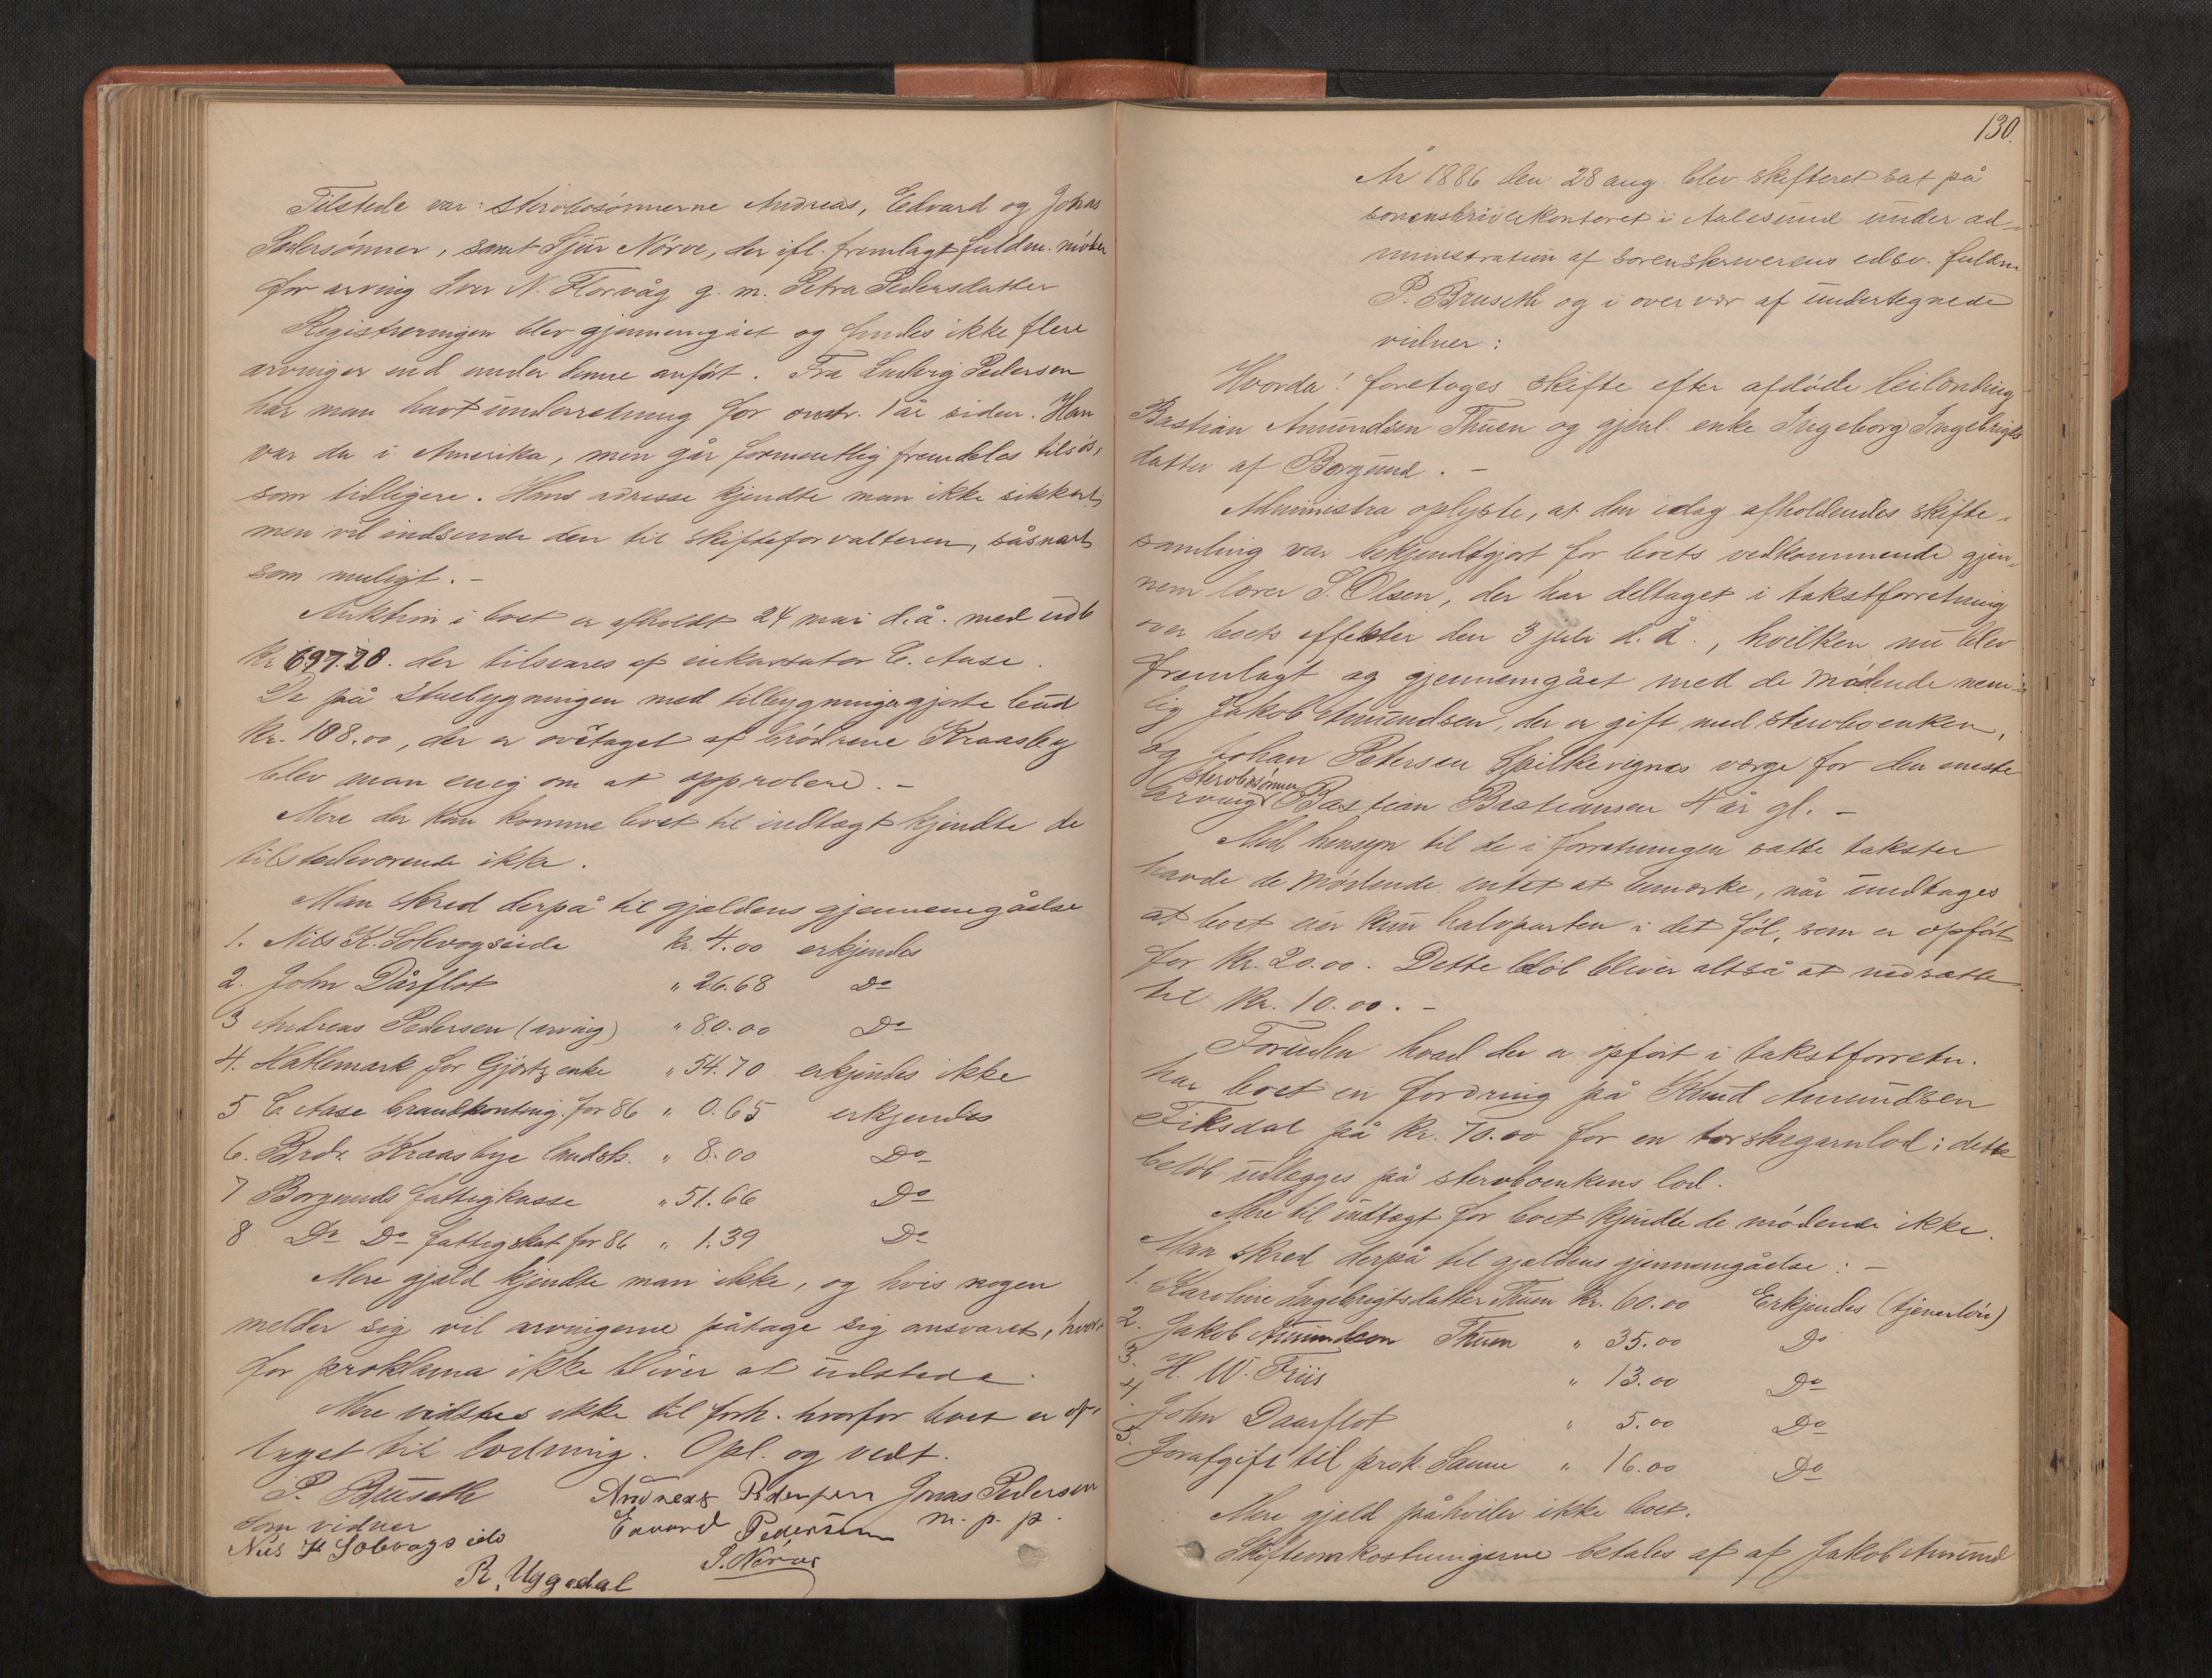 Tilstede var: stervbosønnerne Andreas, Edvard og Johas
Pedersønner, samt Sjur Nörve, der ifl. fremlagt fuldm. möder
for arving Iver N. Florvåg g. m. Petra Pedersdatter
Registreringen blev gjennemgået og findes ikke flere
arvinger end under denne anført. Fra Ludvig Pedersen
har man havt underretning for omtr. 1 år siden. Han
var da i Amerika, men går formentlig fremdeles tilsös,
som tidligere. Hans adresse kjendte man ikke sikkert,
men vil indsende den til skifteforvalteren, såsnart
som muligt. -
Auktion i boet er afholdt 24 mai d. å. med udb
kr 697.20. der tilsvares af inkassator C. Aase.
De på stuebygningen med tilbygninger gjorte bud
kr. 108.00, der er overtaget af brödrene Kraasbye
blev man enig om at approbere. -
Mere der kan komme boet til indtægt kjendte de
tilstedeværende ikke.
Man skred derpå til gjældens gjennemgåelse
1. Nils K. Solevogseide kr. 4.00 erkjendes
2. John Dårflot " 26.68 Do
3 Andreas Pedersen (arving) " 80.00 Do
4. Hatlemark for Gjørtz enke " 54.70 erkjendes ikke
5 C. Aase brandkonting. for 86 " 0.65 erkjendes
6. Brdr. Kraasbye landsk. " 8.00 Do
7 Borgunds fattigkasse " 51.66 Do
8 Do Do fattigskat for 86 " 1.39 Do
Mere gjæld kjendte man ikke, og hvis nogen
melder sig vil arvingerne påtage sig ansvaret, hvor-
for proklama ikke bliver at udstede.
Mere vidstes ikke til forh. hvorfor boet er op-
taget til lodning. Opl. og vedt.
P. Bruseth Andreas Pedersen Jonas Pedersen
Som vidner Edvard Pedersen m. p. p.
Nils K Solevogseide S. Nörve
R. Uggedal
130.
År 1886 den 28 aug. blev skifteret sat på
sorenskriverkontoret i Aalesund under ad-
ministration af sorenskriverens edsv. fuldm
P. Bruseth og i overvær af undertegnede
vidner:
Hvorda! foretoges skifte efter afdöde leilending
Bastian Amundsen Thuen og gjenl. enke Ingeborg Ingebrigts
datter af Borgund. -
Administra oplyste, at den idag afholdendes skifte-
samling var bekjendtgjort for boets vedkommende gjen-
nem lærer S. Olsen, der har deltaget i takstforretning
over boets effekter den 3 juli d. å., hvilken nu blev
fremlagt og gjennemgået med de mödende nem-
lig Jakob Amundsen, der er gift med stervboenken,
og Johan Petersen Spilkevignes værge for den eneste
stervbosønnen
arving Bastian Bastiansen 4 år gl. -
Med hensyn til de i forretningen satte takster
havde de mödende intet at bemærke, når undtages
at boet eier kun halvparten i det föl, som er opfört
for kr. 20.00. Dette belöb bliver altså at nedsætte
til kr. 10.00. -
Foruden hvad der er opfört i takstforretn.
har boet en fordring på Knud Amundsen
Fiksdal på kr. 70.00 for en torskegarnlod; dette
belöb udlægges på stervboenkens lod.
Mere til indtægt for boet kjendte de mödende ikke.
Man skred derpå til gjældens gjennemgåelse: -
1. Karoline Ingebrigtsdatter Thuen kr. 60.00 Erkjendes (tjenerlön)
2. Jakob Amundsen Thuen " 35.00 Do
3. H. W. Friis " 13.00 Do
4. John Daarflot " 5.00 Do
5. Jorafgift til prok. Sanne " 16.00 Do
Mere gjæld påhviler ikke boet.
Skifteomkostningerne betales af af Jakob Amund